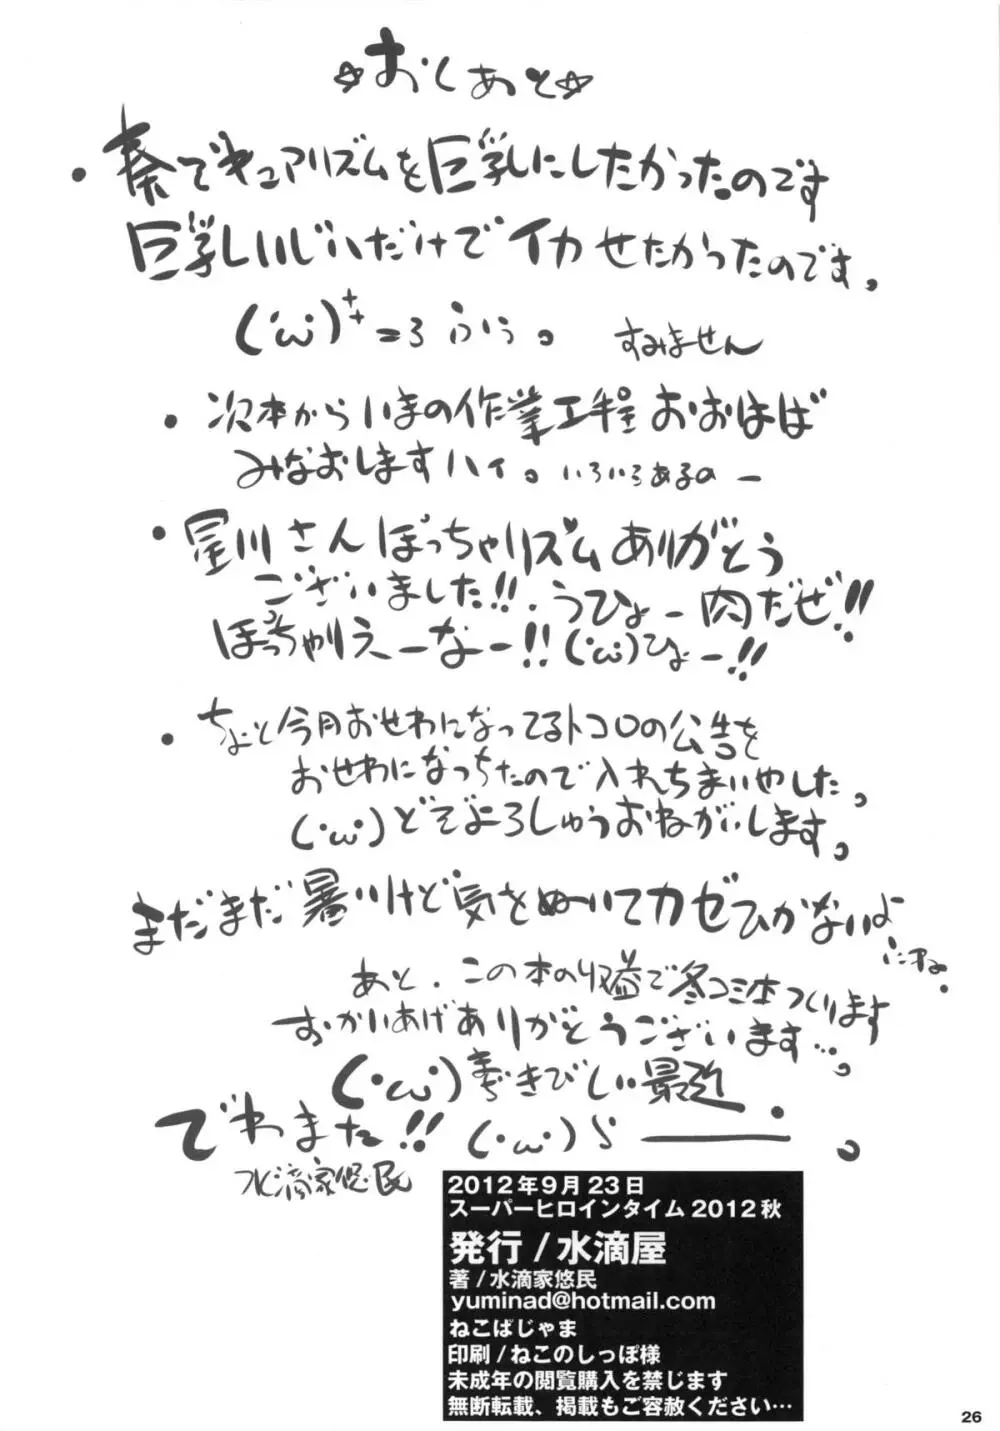 ☆おしあと☆
・奏でキュアリズムを巨乳にしたかったのです
巨乳しいじハだけでイカせたかったのです。
(´ω`)++=3 ふぅ。 すみません
・次本からいまの作業工程おおはば
みなおしますハイ。いろいろあるの ー
・星川さんぽっちゃリズムありがとう
ございました!!.うひょー肉だぜ!!
ぽっちゃりえーなー!!(・ω・)ひょー!!
・ちょと今月おせわになってるトコロの公告を
おせわになっちたので入れちまいやした。
(・ω・)どぞよろしゅうおねがいします。
まだまだ暑いけど気をぬいてカゼひかないよ
にね。
あと.この本の収益で冬コミ本つくります
おかいあげありがとうございます…。
(・ω・)まぢきびしい最近
でわまた!!(・ω・)ゝ ―――。
水滴家悠民
2012年9月23日
スーパーヒロインタイム2012秋
発行/水滴屋
著/水滴家悠民
yuminad@hotmail.com
ねこばじゃま
印刷/ねこのしっぽ様
未成年の閲覧購入を禁じます
無断転載、掲載もご容赦ください…
26